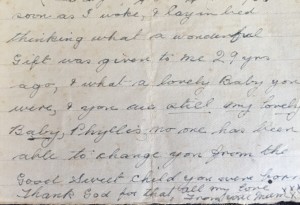 soon as I woke, & lay in bed
thinking what a wonderful
Gift was given to me 29 yrs
ago, & what a lovely Baby you
were, & you are still my lovely
Baby, Phyllis no one has been
able to change you from the
Good Sweet Child you were born
Thank God for that all my love
From your Mum xxx